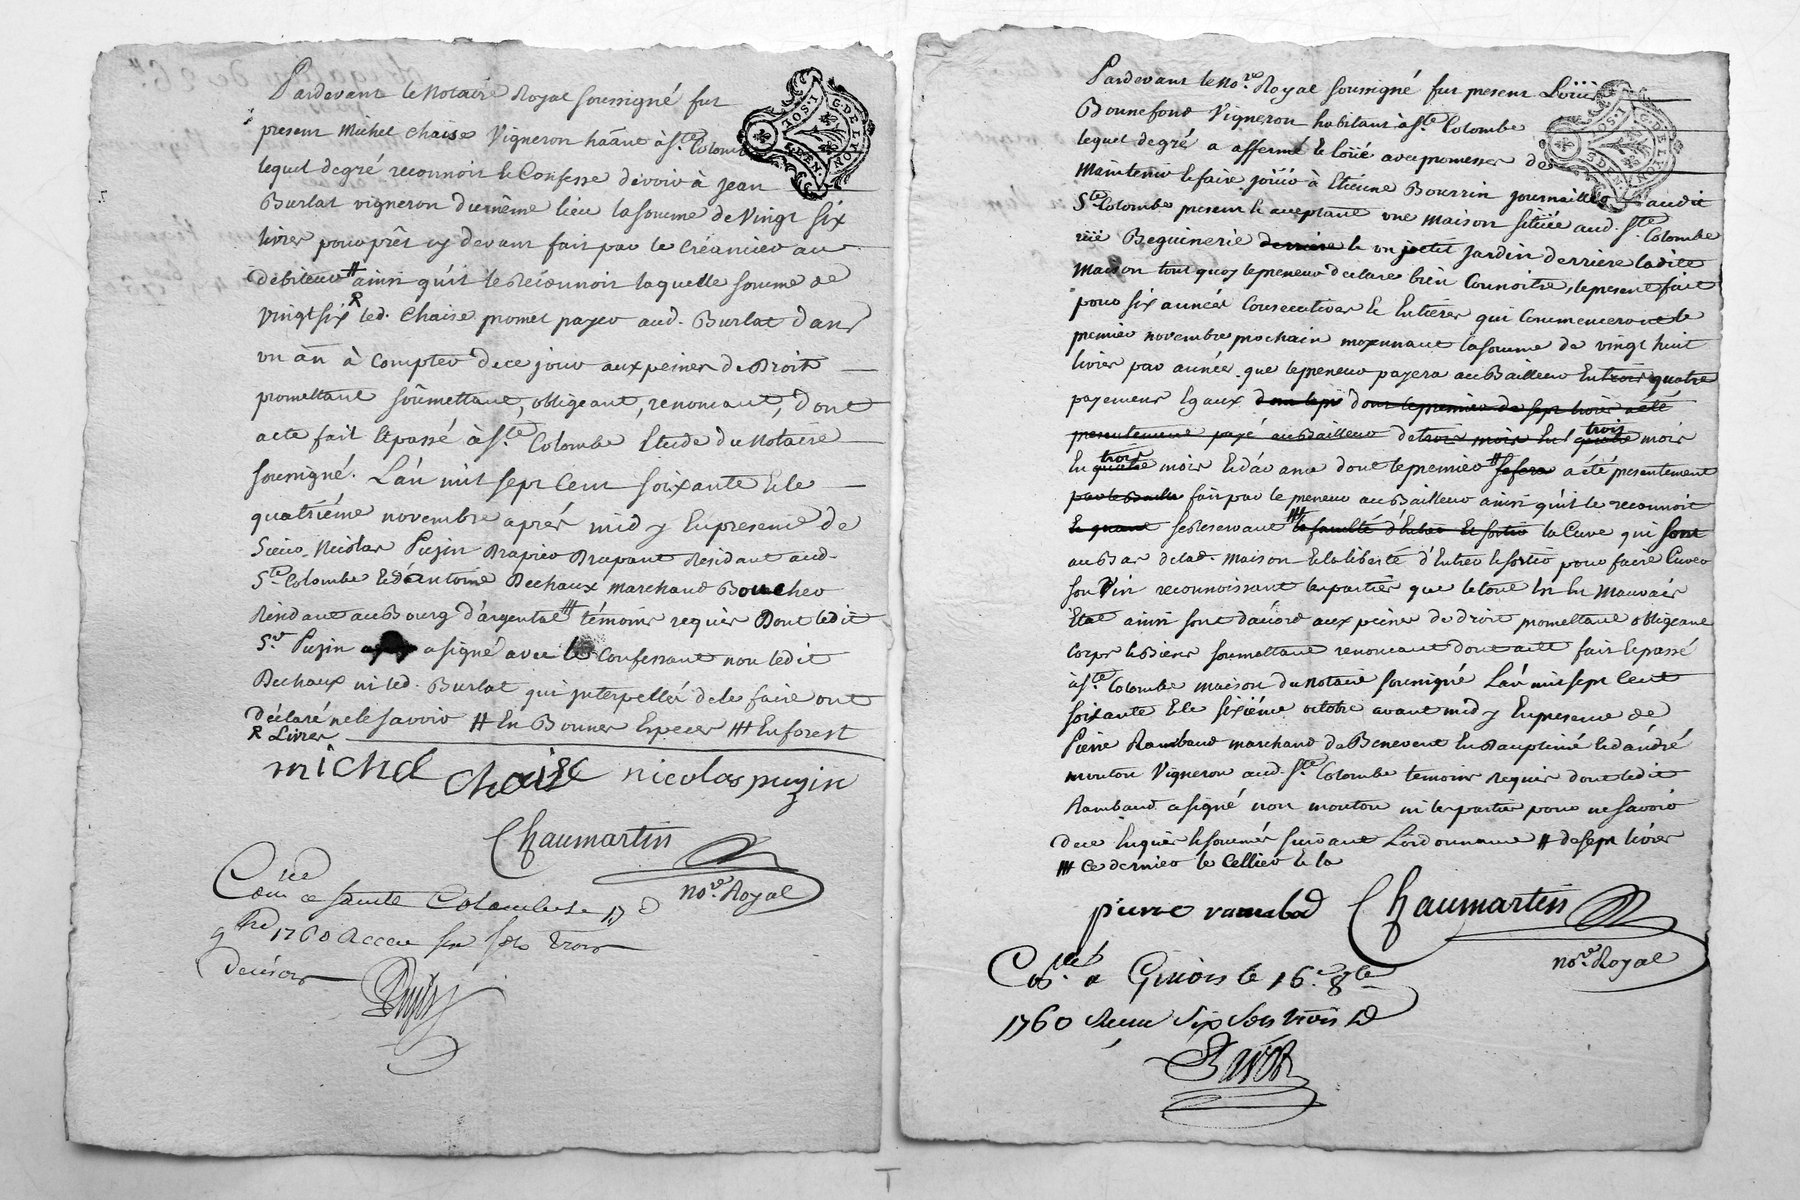 Pardevant le Notaire Royal soussigné fut
present Michel Chaise Vigneron haânt à Ste Colombe
lequel de gré reconnoit & Confesse devoir à Jean
Burlat vigneron du même lieu la somme de Vingt Six
livres pour prêt cy devant fait par le Créancier au
débiteur # ainsi qu'il le Réconnoit laquelle somme de
Vingt six led. Chaise promet payer aud. Burlat dans
un an à Compter de ce jour aux peines de Droit
promettant soûmettant, obligeant, renoncant, dont
acte fait & passé à Ste Colombe Etude du Notaire
soussigné. L'an mil sept Cent soixante & le
quatriéme novembre aprés midy En presence de
Sieur Nicolas Puzin Drapier Drapant Résidant aud.
Ste Colombe & d'antoine Dechaux marchand Boucher
Résidant au Bourg d'argental ## témoins requis Dont ledit
Sr. Puzin a signé avec le Confessant non ledit
Dechaux ni led. Burlat qui interpellés de le faire ont
Déclaré ne le savoir # En Bonnes Especes ## En forest
Livres
michel Chaise nicolas puzin
Chaumartin
nore. Royal
Conllé a Sainte Colombe le 17
9bre 1760 Receu six sols trois
deniers
I. G. DE LYON
SOL. 8. DEN.
Pardevant le Nore Royal soussigné fut present Loüis
Bonnefond Vigneron habitant à Ste Colombe
lequel de gré a affermé & loüé avec promesse de
Maintenir & faire joüir à Etienne Bourrin journaillier audit
Ste Colombe present & acceptant une maison située aud. Ste Colombe
rüe Beguinerie derriere & un petit Jardin derriere ladite
Maison tout quoy le preneur declare bien Connoitre, le present fait
pour six années Consecutives & Entieres qui Commenceront le
premier novembre prochain moyennant la somme de vingt huit
livres par année, que le preneur payera au Bailleur En trois quatre
payemens Egaux dont le premier de sept livres a été
presentement payé au Bailleur de trois mois En trois mois
En trois mois & d'avance dont le premier # le sera a été presentement
fait par le preneur au Bailleur ainsi qu'il le reconnoit
se Reservant ## la faculté d'Entrer & sortir la Cuve qui sont
au Bas de lad. maison & la liberté d'Entrer & sortir pour faire Cuver
son Vin reconnoissant les parties que le tout est En Mauvais
Etat ainsi sont d'acord aux peines de droit promettant obligeant
Corps & Biens soumettant renoncant dont acte fait & passé
à Ste Colombe maison du Notaire soussigné L'an mil sept Cent
soixante & le sixiéme octobre avant midy En presence de
Pierre Rambaud marchand de Benevent En Dauphiné & d'andré
mouton Vigneron aud. Ste Colombe temoins requis dont ledit
Rambaud a signé non mouton ni les parties pour ne savoir
de ce Enquis & sommés suivant L'ordonnance # de sept livres
## Ce dernier le Cellier & la
pierre rambod Chaumartin
nore. Royal
Conllé à Givors le 16e 8bre
1760 Receu six sols trois d
I. G. DE LYON
SOL. 8. DEN.